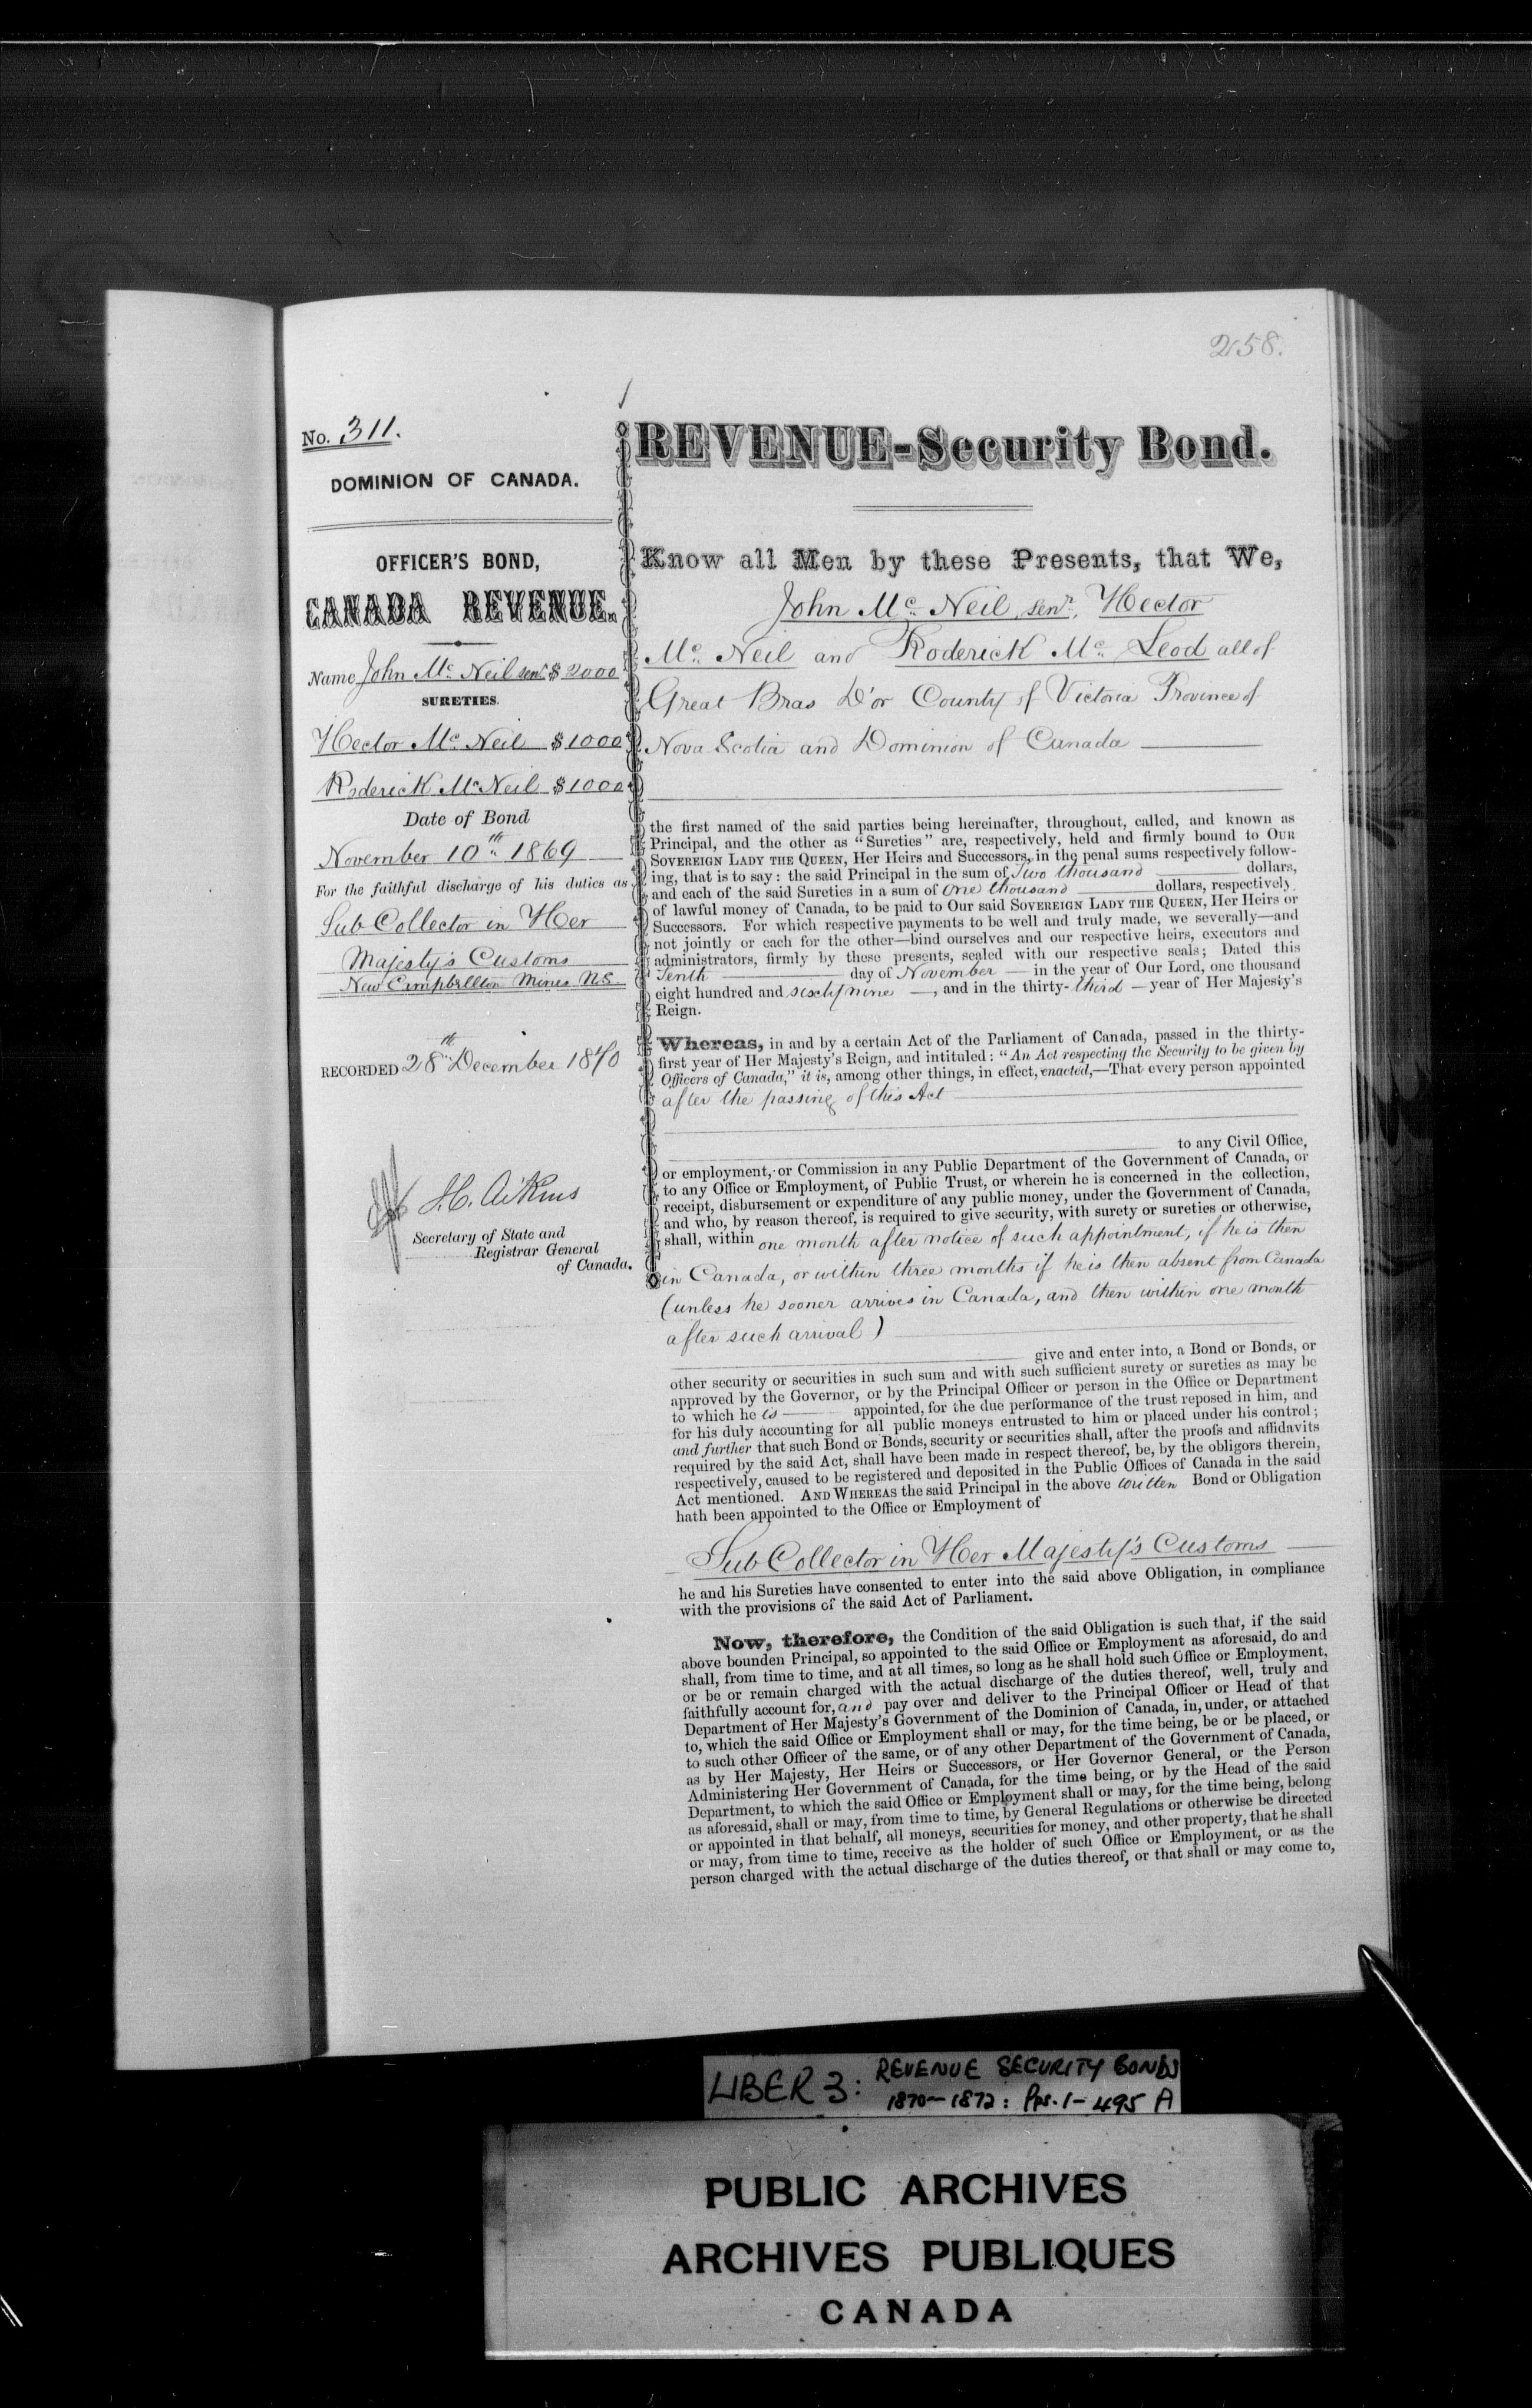 258.
No. 311.
DOMINION OF CANADA.
OFFICER'S BOND,
CANADA REVENUE.
Name John Mc. Neil senr. $ 2000
SURETIES.
Hector Mc. Neil $ 1000
Roderick Mc Neil $ 1000
Date of Bond
November 10th 1869
For the faithful discharge of his duties as
Sub Collector in Her
Majesty's Customs
New Campbellton Mines N.S.
RECORDED 28th December 1870
J.C. Aikins
Secretary of State and
Registrar General
of Canada.
REVENUE-Security Bond.
Know all Men by these Presents, that We,
John Mc. Neil, senr., Hector
Mc. Neil and Roderick Mc. Leod all of
Great Bras D'or County of Victoria Province of
Nova Scotia and Dominion of Canada
the first named of the said parties being hereinafter, throughout, called, and known as
Principal, and the other as "Sureties" are, respectively, held and firmly bound to OUR
SOVEREIGN LADY THE QUEEN, Her Heirs and Successors, in the penal sums respectively follow-
ing, that is to say: the said Principal in the sum of Two thousand dollars,
and each of the said Sureties in a sum of One thousand dollars, respectively
of lawful money of Canada, to be paid to Our said SOVEREIGN LADY THE QUEEN, Her Heirs or
Successors. For which respective payments to be well and truly made, we severally—and
not jointly or each for the other—bind ourselves and our respective heirs, executors and
administrators, firmly by these presents, sealed with our respective seals; Dated this
Tenth day of November — in the year of Our Lord, one thousand
eight hundred and sixty nine —, and in the thirty-third — year of Her Majesty's
Reign.
Whereas, in and by a certain Act of the Parliament of Canada, passed in the thirty-
first year of Her Majesty's Reign, and intituled: "An Act respecting the Security to be given by
Officers of Canada," it is, among other things, in effect, enacted,—That every person appointed
after the passing of this Act
to any Civil Office,
or employment, or Commission in any Public Department of the Government of Canada, or
to any Office or Employment, of Public Trust, or wherein he is concerned in the collection,
receipt, disbursement or expenditure of any public money, under the Government of Canada,
and who, by reason thereof, is required to give security, with surety or sureties or otherwise,
shall, within one month after notice of such appointment, if he is then
in Canada, or within three months if he is then absent from Canada
(unless he sooner arrives in Canada, and then within one month
after such arrival)
give and enter into, a Bond or Bonds, or
other security or securities in such sum and with such sufficient surety or sureties as may be
approved by the Governor, or by the Principal Officer or person in the Office or Department
to which he is — appointed, for the due performance of the trust reposed in him, and
for his duly accounting for all public moneys entrusted to him or placed under his control;
and further that such Bond or Bonds, security or securities shall, after the proofs and affidavits
required by the said Act, shall have been made in respect thereof, be, by the obligors therein,
respectively, caused to be registered and deposited in the Public Offices of Canada in the said
Act mentioned. AND WHEREAS the said Principal in the above written Bond or Obligation
hath been appointed to the Office or Employment of
Sub Collector in Her Majesty's Customs
he and his Sureties have consented to enter into the said above Obligation, in compliance
with the provisions of the said Act of Parliament.
Now, therefore, the Condition of the said Obligation is such that, if the said
above bounden Principal, so appointed to the said Office or Employment as aforesaid, do and
shall, from time to time, and at all times, so long as he shall hold such Office or Employment,
or be or remain charged with the actual discharge of the duties thereof, well, truly and
faithfully account for, and pay over and deliver to the Principal Officer or Head of that
Department of Her Majesty's Government of the Dominion of Canada, in, under, or attached
to, which the said Office or Employment shall or may, for the time being, be or be placed, or
to such other Officer of the same, or of any other Department of the Government of Canada,
as by Her Majesty, Her Heirs or Successors, or Her Governor General, or the Person
Administering Her Government of Canada, for the time being, or by the Head of the said
Department, to which the said Office or Employment shall or may, for the time being, belong
as aforesaid, shall or may, from time to time, by General Regulations or otherwise be directed
or appointed in that behalf, all moneys, securities for money, and other property, that he shall
or may, from time to time, receive as the holder of such Office or Employment, or as the
person charged with the actual discharge of the duties thereof, or that shall or may come to,
LIBER 3: REVENUE SECURITY BONDS
1870-1872: Pps. 1-495 A
PUBLIC ARCHIVES
ARCHIVES PUBLIQUES
CANADA